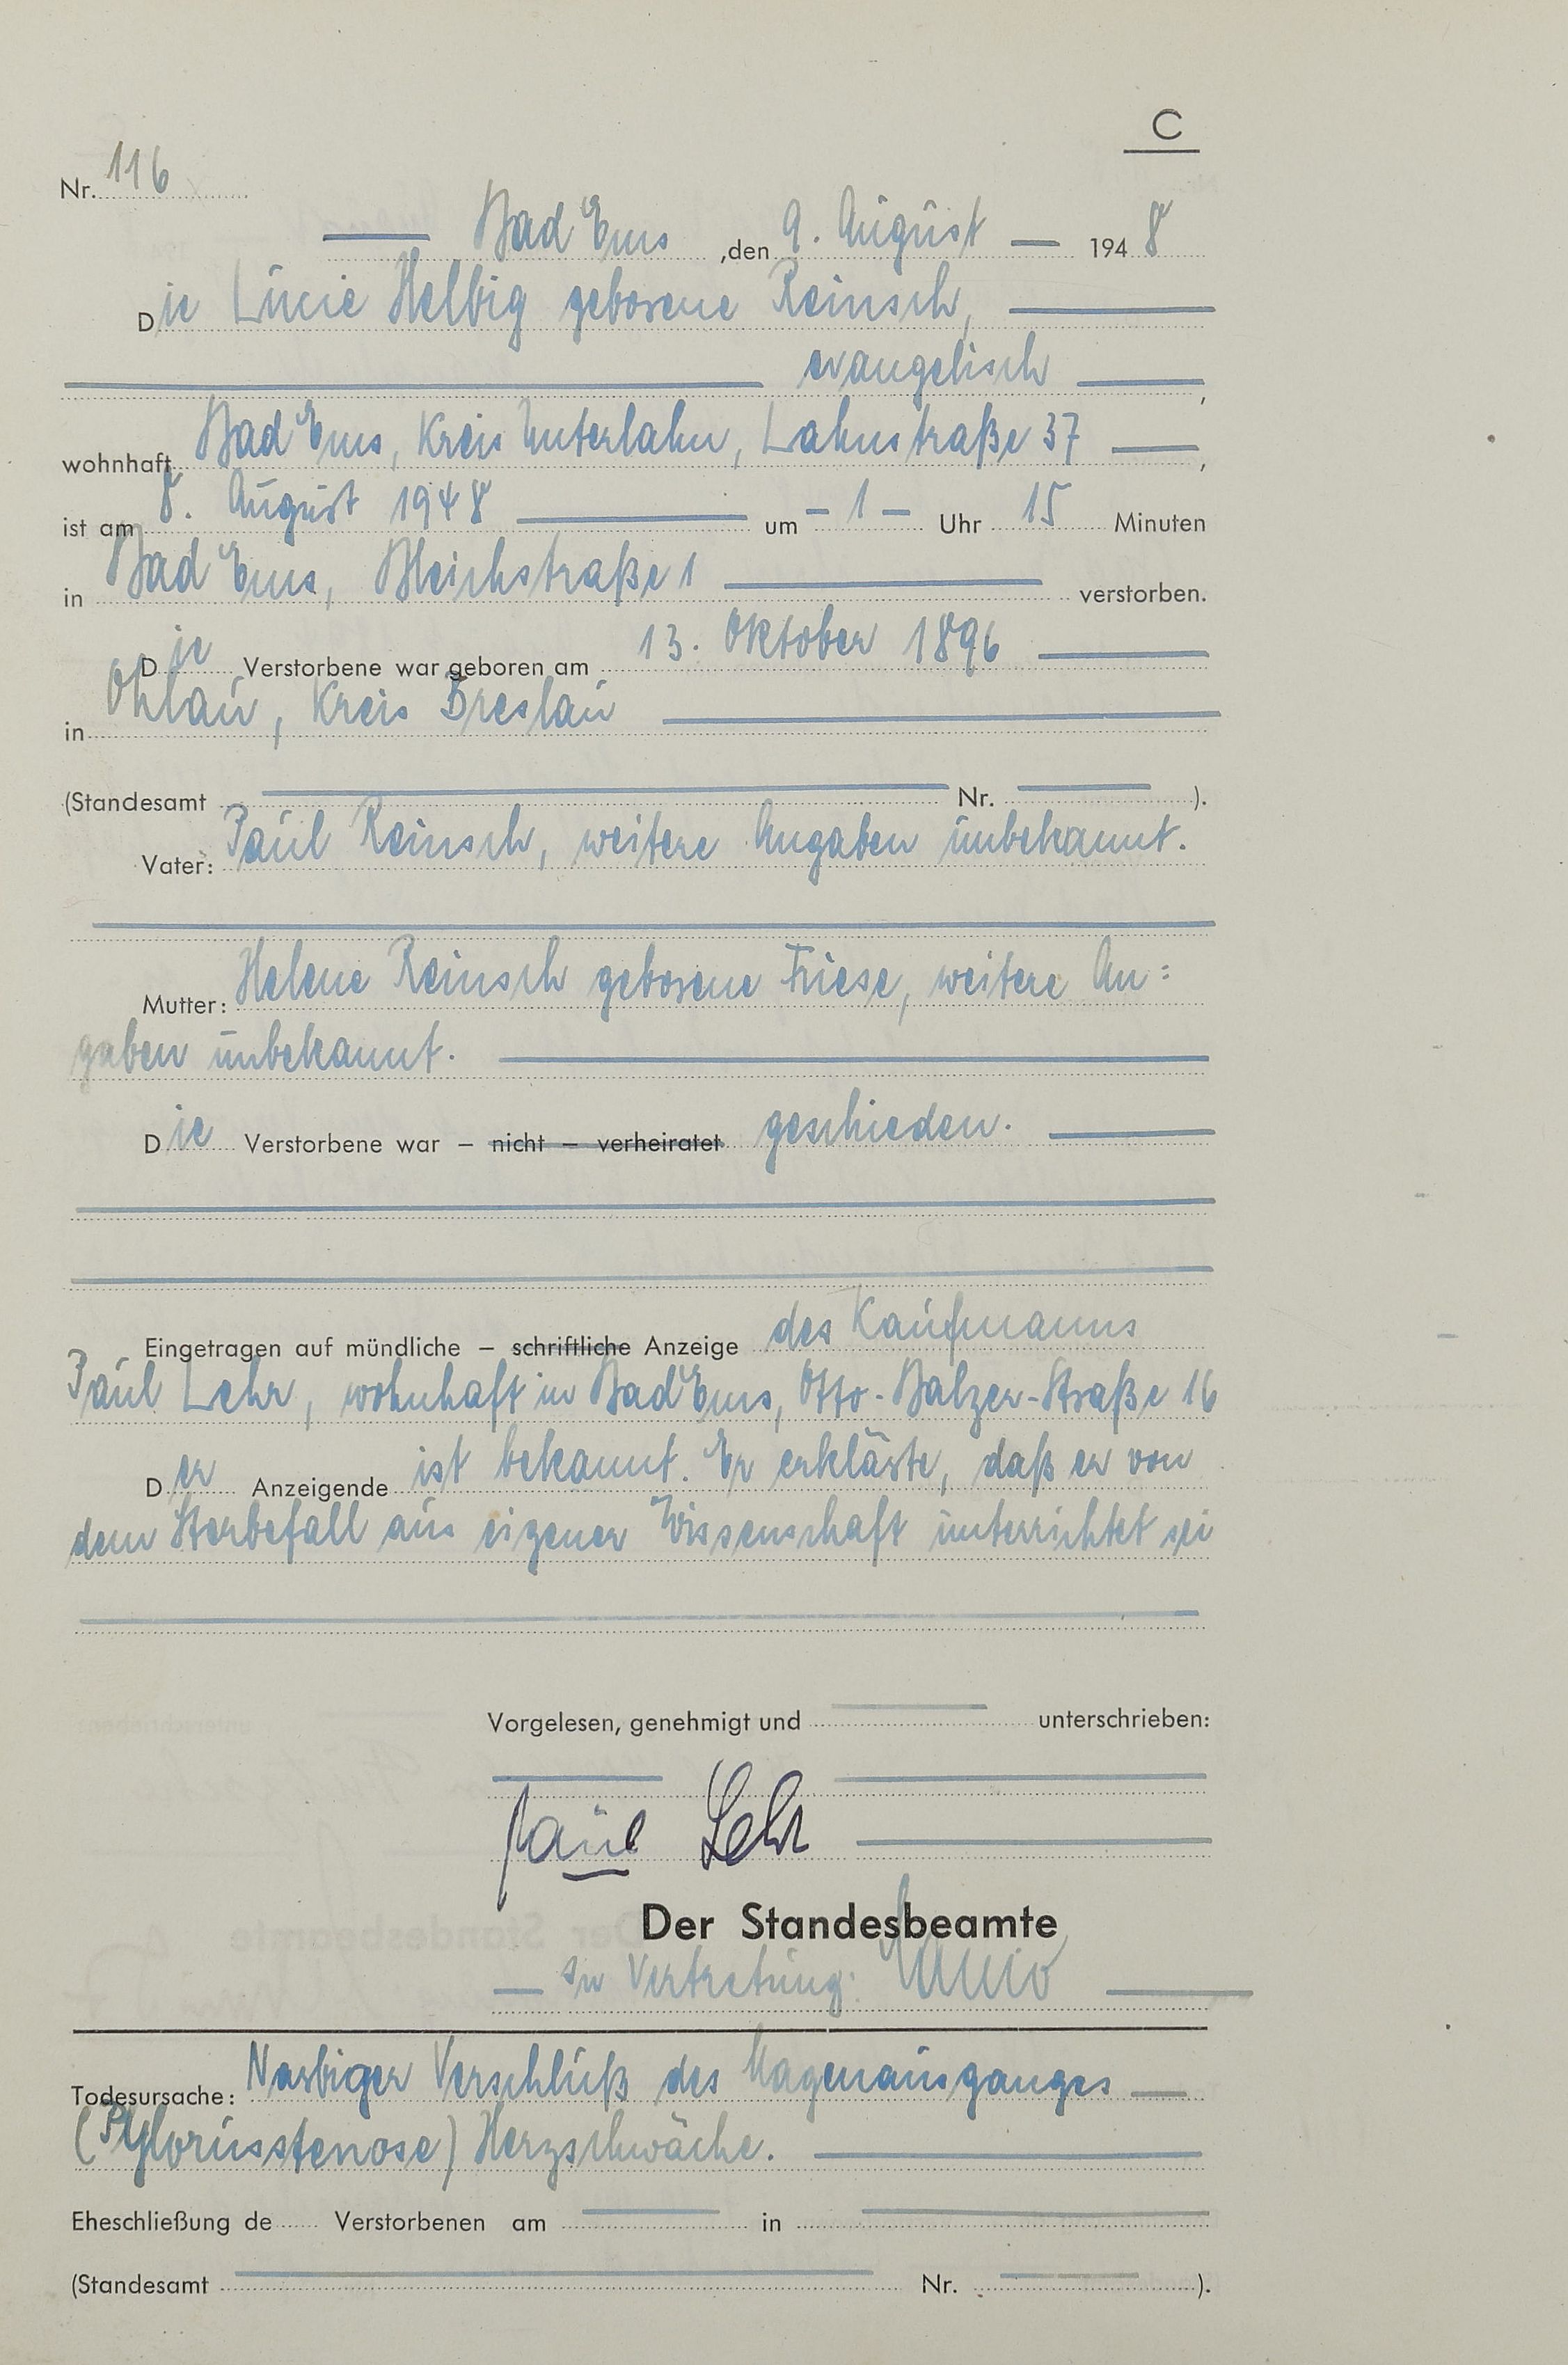 C
Nr. 116
Bad Ems, den 9. August 1948
Die Lucie Helbig geborene Reinsch,
evangelisch,
wohnhaft Bad Ems, Kreis Unterlahn, Lahnstraße 37,
ist am 8. August 1948 um - 1 - Uhr 15 Minuten
in Bad Ems, Bleichstraße 1 verstorben.
Die Verstorbene war geboren am 13. Oktober 1896
in Ohlau, Kreis Breslau
(Standesamt Nr. ).
Vater: Paul Reinsch, weitere Angaben unbekannt.
Mutter: Helene Reinsch geborene Friese, weitere An=
gaben unbekannt.
Die Verstorbene war – nicht – verheiratet geschieden.
Eingetragen auf mündliche – schriftliche Anzeige des Kaufmanns
Paul Lehr, wohnhaft in Bad Ems, Otto-Balzer-Straße 16
Der Anzeigende ist bekannt. Er erklärte, daß er von
dem Sterbefall aus eigener Wissenschaft unterrichtet sei
Vorgelesen, genehmigt und unterschrieben:
Paul Lehr
Der Standesbeamte
In Vertretung:
Todesursache: Narbiger Verschluß des Magenausganges
(Pylorusstenose) Herzschwäche.
Eheschließung de Verstorbenen am in
(Standesamt Nr. ).